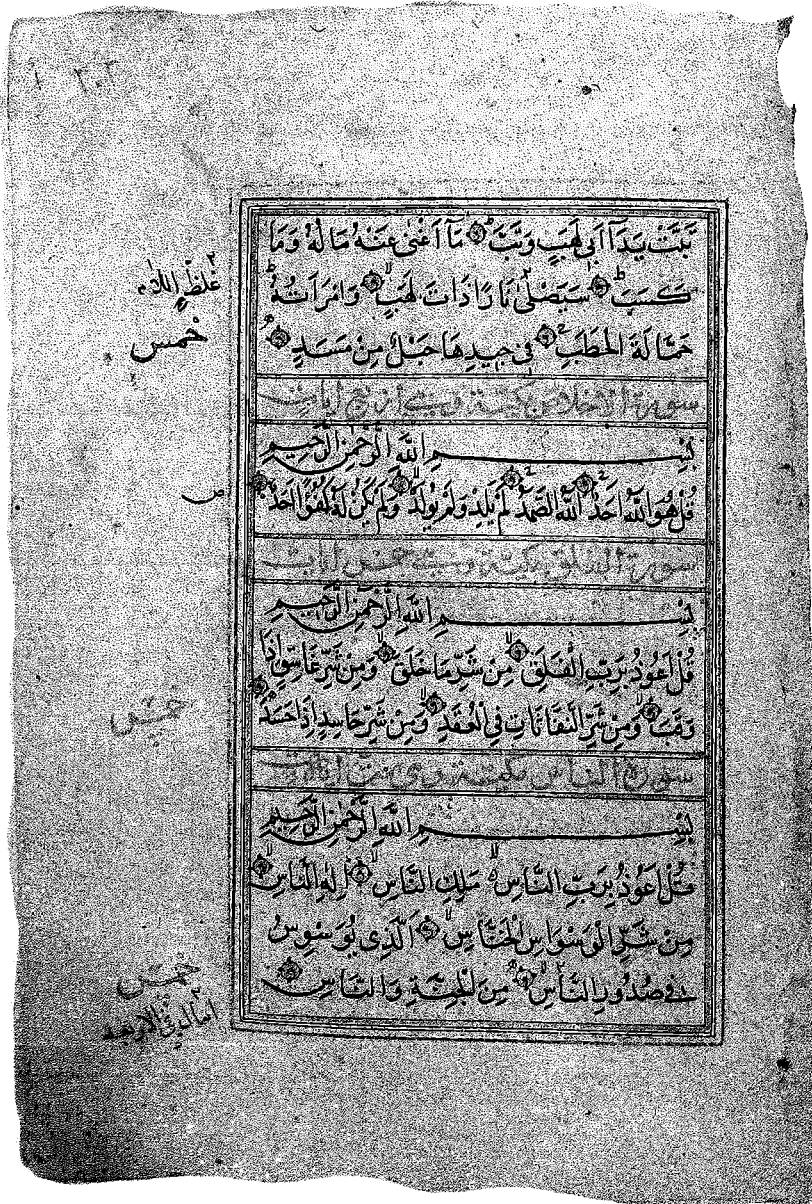 ٣٠٣
تَبَّتْ يَدَآ اَبِى لَهَبٍ وَتَبَّ مَآ اَغْنٰى عَنْهُ مَالُهُ وَمَا
كَسَبَ سَيَصْلٰى نَارًا ذَاتَ لَهَبٍ وَامْرَاَتُهُ
حَمَّالَةَ الْحَطَبِ فِى جِيدِهَا حَبْلٌ مِنْ مَسَدٍ
خمس
سورة الاخلاص مكية وهى اربع ايات
بِسْمِ اللّٰهِ الرَّحْمٰنِ الرَّحِيمِ
قُلْ هُوَ اللّٰهُ اَحَدٌ اَللّٰهُ الصَّمَدُ لَمْ يَلِدْ وَلَمْ يُولَدْ وَلَمْ يَكُنْ لَهُ كُفُوًا اَحَدٌ
سورة الفلق مكية وهى خمس ايات
بِسْمِ اللّٰهِ الرَّحْمٰنِ الرَّحِيمِ
قُلْ اَعُوذُ بِرَبِّ الْفَلَقِ مِنْ شَرِّ مَا خَلَقَ وَمِنْ شَرِّ غَاسِقٍ اِذَا
وَقَبَ وَمِنْ شَرِّ النَّفَّاثَاتِ فِى الْعُقَدِ وَمِنْ شَرِّ حَاسِدٍ اِذَا حَسَدَ
خمس
سورة الناس مكية وهى ست ايات
بِسْمِ اللّٰهِ الرَّحْمٰنِ الرَّحِيمِ
قُلْ اَعُوذُ بِرَبِّ النَّاسِ مَلِكِ النَّاسِ اِلٰهِ النَّاسِ
مِنْ شَرِّ الْوَسْوَاسِ الْخَنَّاسِ اَلَّذِى يُوَسْوِسُ
فِى صُدُورِ النَّاسِ مِنَ الْجِنَّةِ وَالنَّاسِ
خمس